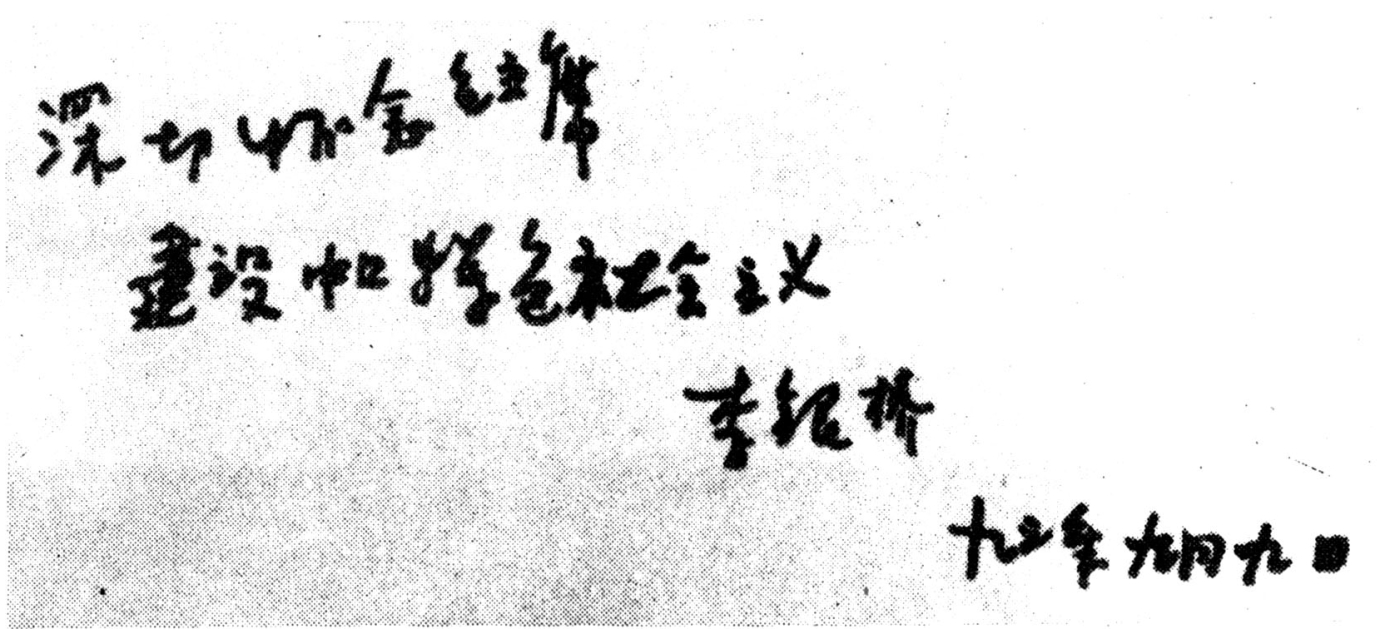 深切怀念毛主席
建设中国特色社会主义
李银桥
九三年九月九日